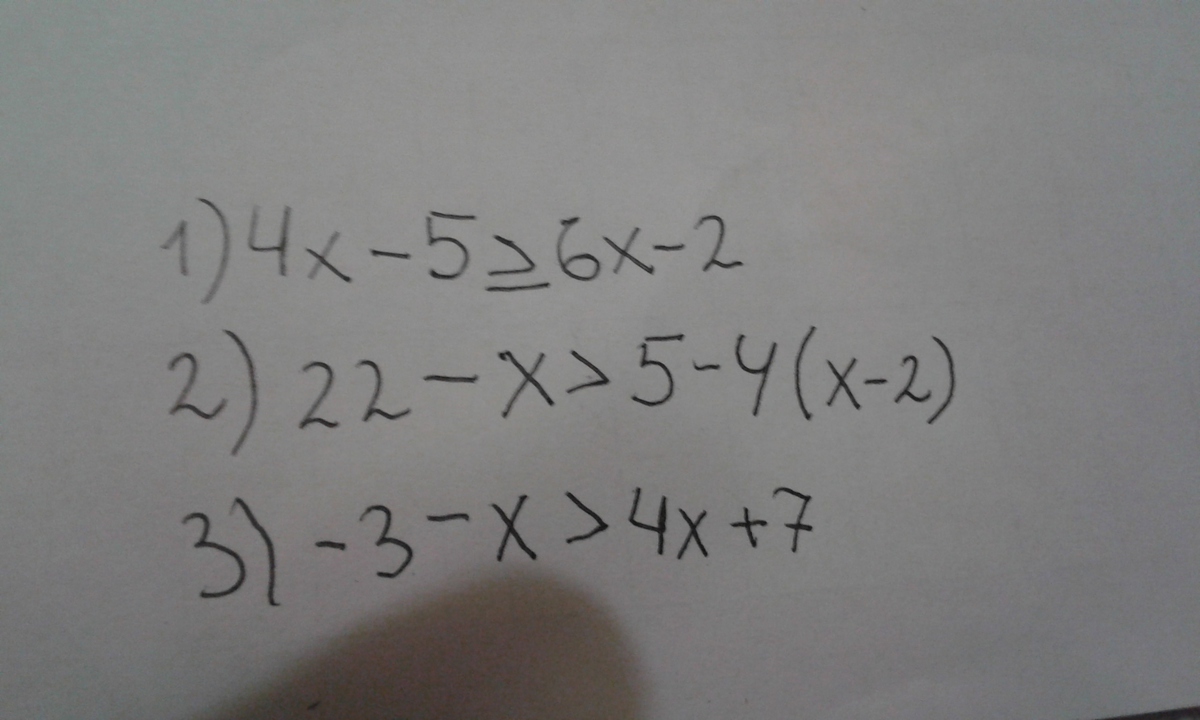 1) 4x - 5 ≥ 6x - 2
2) 22 - x > 5 - 4(x - 2)
3) -3 - x > 4x + 7